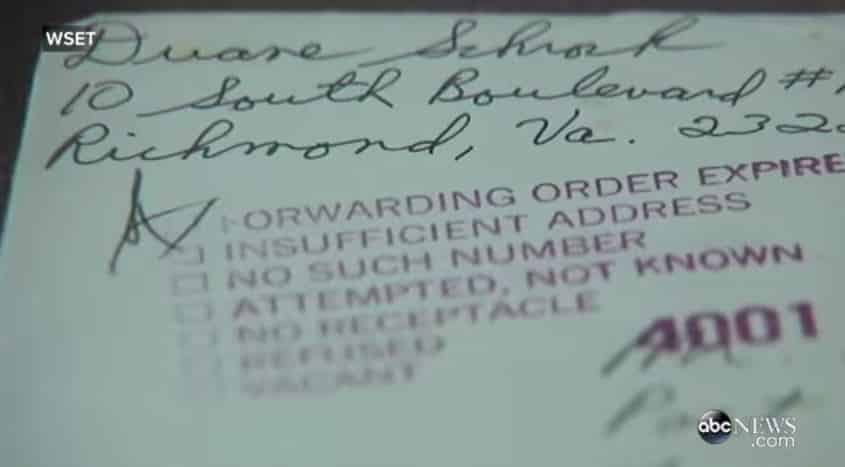 WSET
Duane Schrock
10 South Boulevard #
Richmond, Va. 232
FORWARDING ORDER EXPIRE
INSUFFICIENT ADDRESS
NO SUCH NUMBER
ATTEMPTED, NOT KNOWN
NO RECEPTACLE
REFUSED
VACANT
4001
abc NEWS
.com